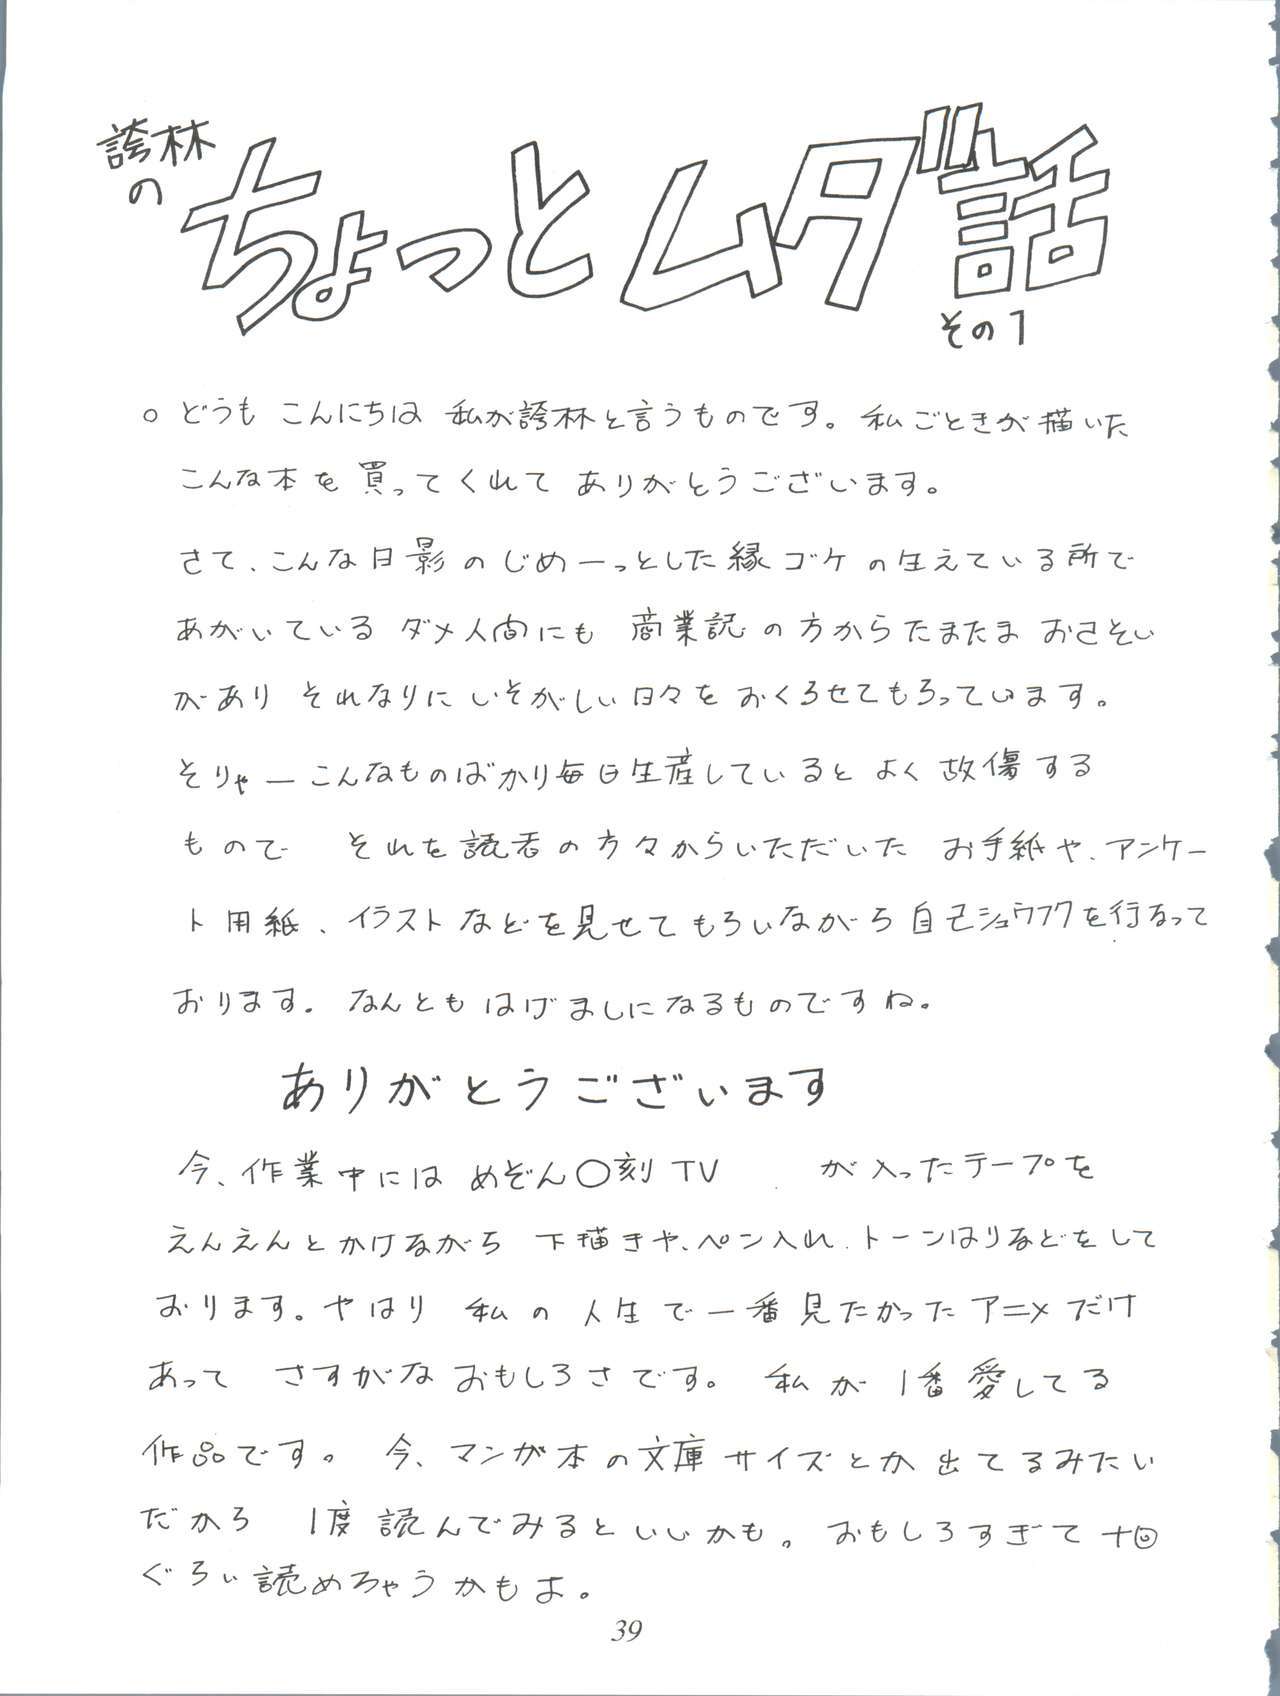 誇林
の
ちょっとムダ話
その1
○ どうも こんにちは 私が誇林と言うものです。私ごときが描いた
こんな本を買ってくれて ありがとうございます。
さて、こんな日影のじめーっとした縁ゴケの生えている所で
あがいている ダメ人間にも 商業誌の方からたまたま おさそい
があり それなりに いそがしい日々を おくらせてもらっています。
そりゃーこんなものばかり毎日生産していると よく故傷する
もので それを読者の方々からいただいた お手紙や、アンケー
ト用紙、イラストなどを見せてもらいながら 自己シュウフクを行なって
おります。なんとも はげましになるものですね。
ありがとうございます
今、作業中には めぞん○刻TV が入ったテープを
えんえんとかけながら 下描きや、ペン入れ、トーンはりなどをして
おります。やはり 私の人生で一番見たかったアニメだけ
あって さすがなおもしろさです。私が1番愛してる
作品です。今、マンガ本の文庫サイズとか出てるみたい
だから 1度読んでみるといいかも。おもしろすぎて十回
ぐらい読めちゃうかもよ。
39